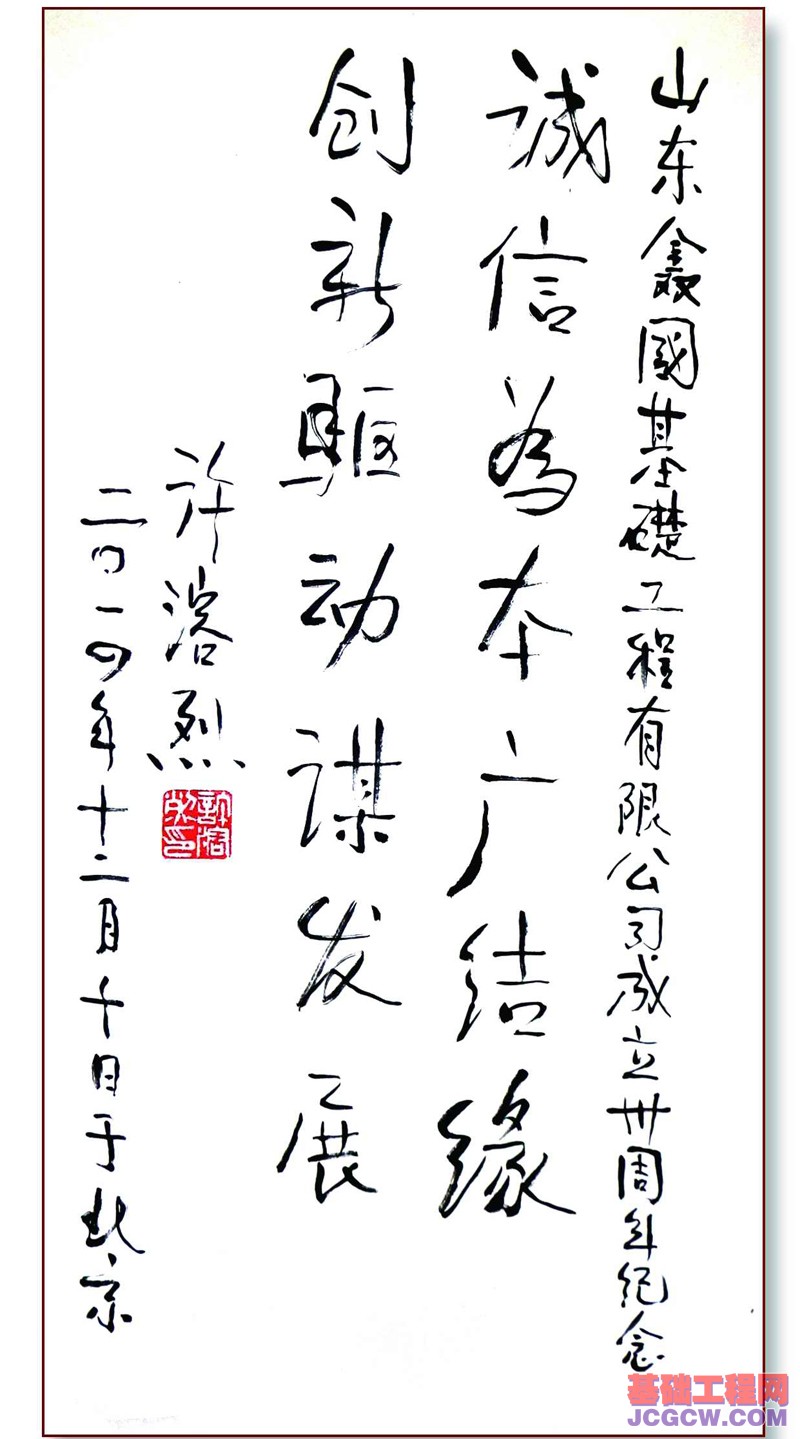 山东鑫國基礎工程有限公司成立卅周年纪念
诚信為本广结缘
创新驱动谋发展
许溶烈
二〇一四年十二月十日于北京
許溶烈印
基础工程网
JCGCW.COM